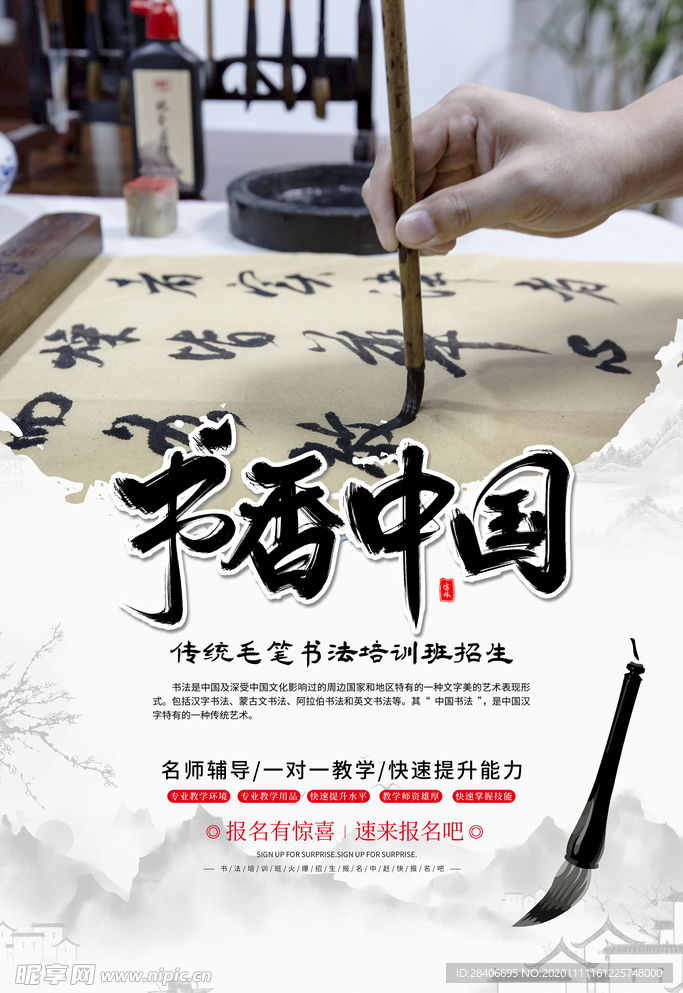 书香中国
传统毛笔书法培训班招生
书法是中国及深受中国文化影响过的周边国家和地区特有的一种文字美的艺术表现形
式。包括汉字书法、蒙古文书法、阿拉伯书法和英文书法等。其“ 中国书法 ”，是中国汉
字特有的一种传统艺术。
名师辅导/一对一教学/快速提升能力
专业教学环境 专业教学用品 快速提升水平 教学师资雄厚 快速掌握技能
报名有惊喜 速来报名吧
SIGN UP FOR SURPRISE.SIGN UP FOR SURPRISE.
书/法/培/训/班/火/爆/招/生/报/名/中/赶/快/报/名/吧
昵享网 www.nipic.cn
ID:28406695 NO:20201111161225748000